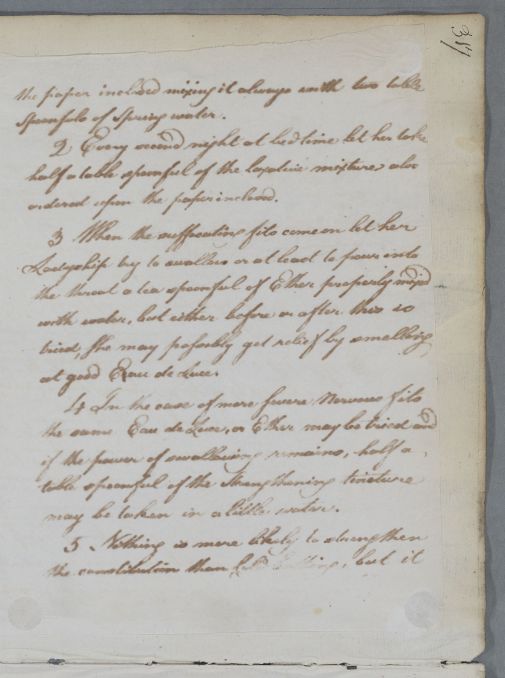 357
the paper inclosed mixing it always with two table
Spoonfuls of Spring water.
2 Every second night at bedtime let her take
half a table spoonful of the laxative mixture also
ordered upon the paper inclosed.
3 When the suffocating fits come on let her
Ladyship try to swallow or at least to pour into
the throat a tea spoonful of Ether properly mix'd
with water, but either before or after this is
tried, She may possibly get relief by smelling
at good Eau de Luce.
4 In the case of more severe Nervous fits
the same Eau de Luce, or Ether may be tried and
if the power of swallowing remains, half a
table spoonful of the Strengthening tincture
may be taken in a little water.
5 Nothing is more likely to strengthen
the constitution than Cold bathing, but it